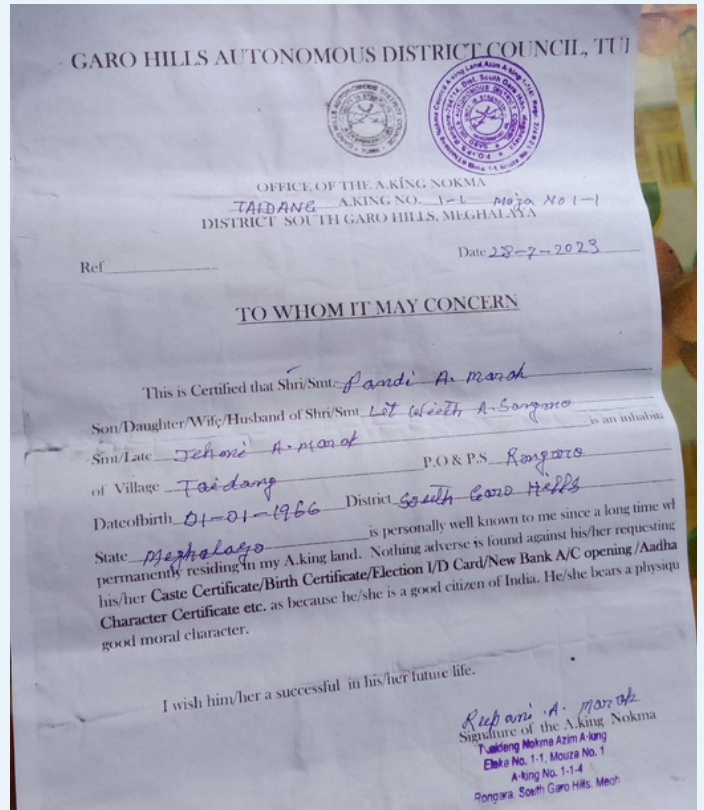 GARO HILLS AUTONOMOUS DISTRICT COUNCIL, TU
OFFICE OF THE A.KING NOKMA
TAIDANG A.KING NO. 1-1 Moza No 1-1
DISTRICT SOUTH GARO HILLS, MEGHALAYA
Ref
Date 28-7-2023
TO WHOM IT MAY CONCERN
This is Certified that Shri/Smt. Pandi A. Marak
Son/Daughter/Wife/Husband of Shri/Smt Let A. Sangma
Smt/Late Jehoni A. Marak is an inhabita
of Village Taidang P.O & P.S Rongara
Dateofbirth 01-01-1966 District South Garo Hills
State Meghalaya is personally well known to me since a long time wh
permanently residing in my A.king land. Nothing adverse is found against his/her requesting
his/her Caste Certificate/Birth Certificate/Election I/D Card/New Bank A/C opening /Aadha
Character Certificate etc. as because he/she is a good citizen of India. He/she bears a physiqu
good moral character.
I wish him/her a successful in his/her future life.
Repani A. Marak
Signature of the A.king Nokma
Nokma Azim A·king
Elaka No. 1-1, Mouza No. 1
A·king No. 1-1-4
Rongara, South Garo Hills, Megh